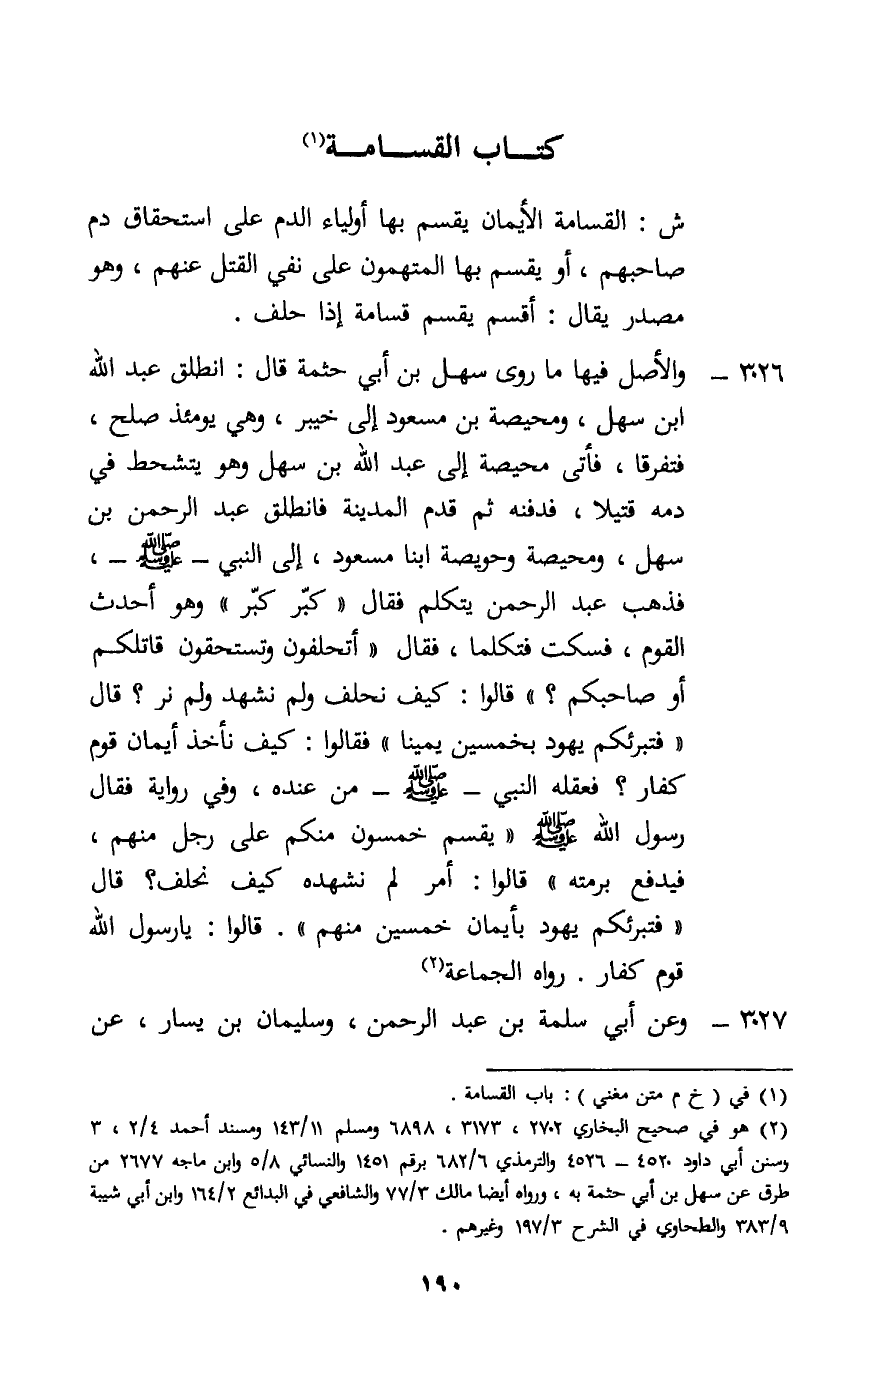 كتـــاب القســـامـــة(١)
ش : القسامة الأيمان يقسم بها أولياء الدم على استحقاق دم
صاحبهم ، أو يقسم بها المتهمون على نفي القتل عنهم ، وهو
مصدر يقال : أقسم يقسم قسامة إذا حلف .
٣٠٢٦ – والأصل فيها ما روى سهل بن أبي حثمة قال : انطلق عبد الله
ابن سهل ، ومحيصة بن مسعود إلى خيبر ، وهي يومئذ صلح ،
فتفرقا ، فأتى محيصة إلى عبد الله بن سهل وهو يتشحط في
دمه قتيلا ، فدفنه ثم قدم المدينة فانطلق عبد الرحمن بن
سهل ، ومحيصة وحويصة ابنا مسعود ، إلى النبي – ﷺ – ،
فذهب عبد الرحمن يتكلم فقال « كبّر كبّر » وهو أحدث
القوم ، فسكت فتكلما ، فقال « أتحلفون وتستحقون قاتلكم
أو صاحبكم ؟ » قالوا : كيف نحلف ولم نشهد ولم نر ؟ قال
« فتبرئكم يهود بخمسين يمينا » فقالوا : كيف نأخذ أيمان قوم
كفار ؟ فعقله النبي – ﷺ – من عنده ، وفي رواية فقال
رسول الله ﷺ « يقسم خمسون منكم على رجل منهم ،
فيدفع برمته » قالوا : أمر لم نشهده كيف نحلف؟ قال
« فتبرئكم يهود بأيمان خمسين منهم » . قالوا : يارسول الله
قوم كفار . رواه الجماعة(٢)
٣٠٢٧ – وعن أبي سلمة بن عبد الرحمن ، وسليمان بن يسار ، عن
(١) في ( خ م متن مغني ) : باب القسامة .
(٢) هو في صحيح البخاري ٢٧٠٢ ، ٣١٧٣ ، ٦٨٩٨ ومسلم ١٤٣/١١ ومسند أحمد ٢/٤ ، ٣
وسنن أبي داود ٤٥٢٠ – ٤٥٢٦ والترمذي ٦٨٢/٦ برقم ١٤٥١ والنسائي ٥/٨ وابن ماجه ٢٦٧٧ من
طرق عن سهل بن أبي حثمة به ، ورواه أيضا مالك ٧٧/٣ والشافعي في البدائع ١٦٤/٢ وابن أبي شيبة
٣٨٣/٩ والطحاوي في الشرح ١٩٧/٣ وغيرهم .
١٩٠